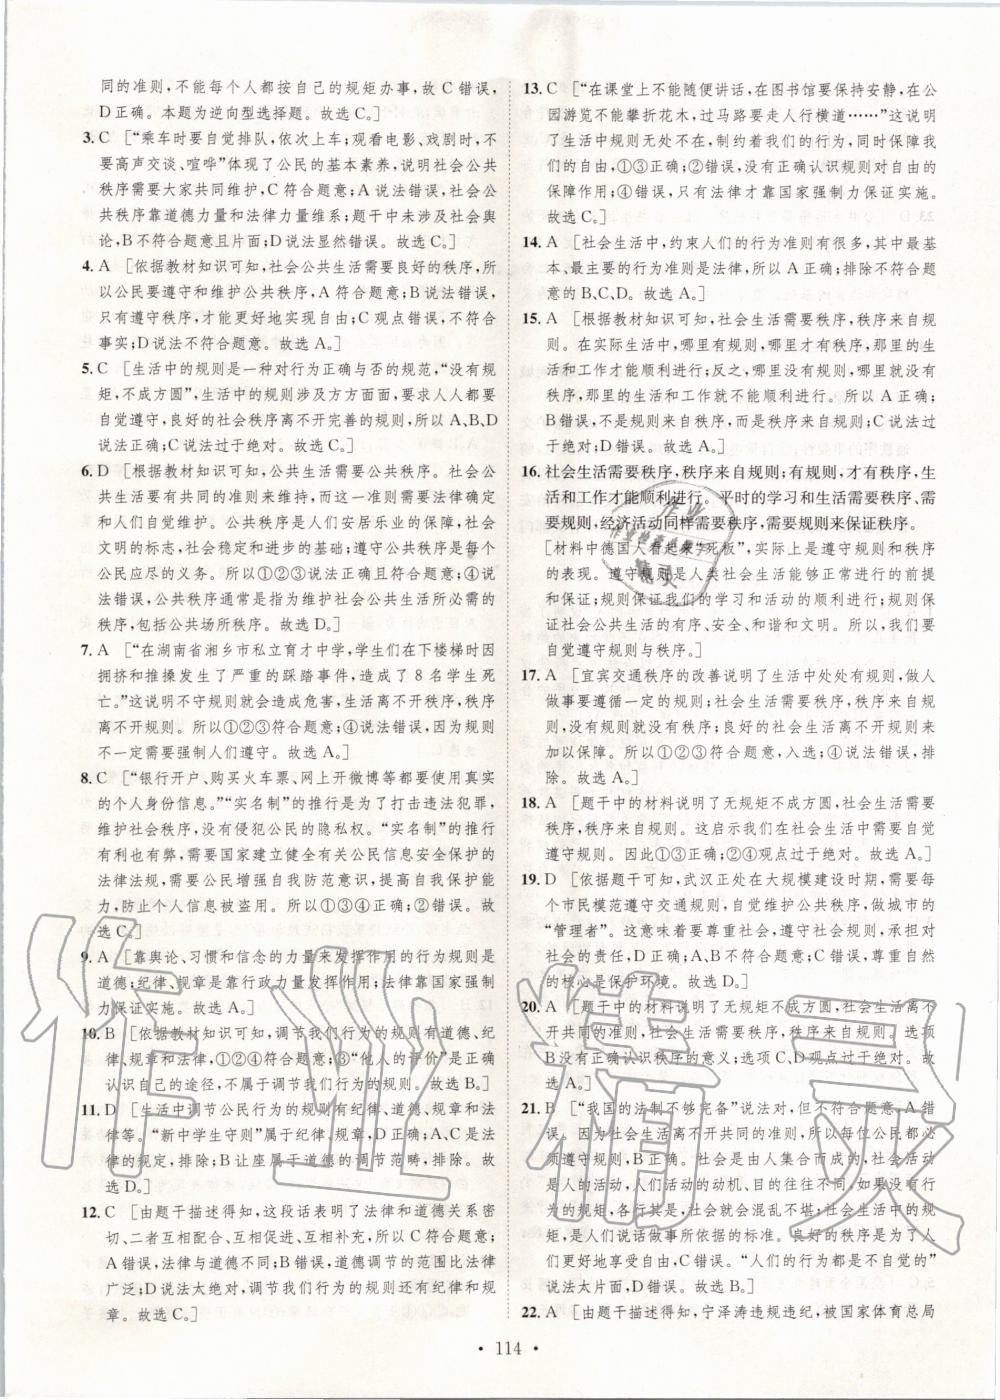 同的准则,不能每个人都按自己的规矩办事,故 C 错误,
D 正确。本题为逆向型选择题。故选 C。]
3. C [“乘车时要自觉排队,依次上车;观看电影、戏剧时,不
要高声交谈、喧哗”体现了公民的基本素养,说明社会公共
秩序需要大家共同维护,C 符合题意;A 说法错误,社会公
共秩序靠道德力量和法律力量维系;题干中未涉及社会舆
论,B 不符合题意且片面;D 说法显然错误。故选 C。]
4. A [依据教材知识可知,社会公共生活需要良好的秩序,所
以公民要遵守和维护公共秩序,A 符合题意;B 说法错误,
只有遵守秩序,才能更好地实现自由;C 观点错误,不符合
事实;D 说法不符合题意。故选 A。]
5. C [生活中的规则是一种对行为正确与否的规范,“没有规
矩,不成方圆”,生活中的规则涉及方方面面,要求人人都要
自觉遵守,良好的社会秩序离不开完善的规则,所以 A、B、D
说法正确;C 说法过于绝对。故选 C。]
6. D [根据教材知识可知,公共生活需要公共秩序。社会公
共生活要有共同的准则来维持,而这一准则需要法律确定
和人们自觉维护。公共秩序是人们安居乐业的保障,社会
文明的标志,社会稳定和进步的基础;遵守公共秩序是每个
公民应尽的义务。所以①②③说法正确且符合题意;④说
法错误,公共秩序通常是指为维护社会公共生活所必需的
秩序,包括公共场所秩序。故选 D。]
7. A [“在湖南省湘乡市私立育才中学,学生们在下楼梯时因
拥挤和推搡发生了严重的踩踏事件,造成了 8 名学生死
亡。”这说明不守规则就会造成危害,生活离不开秩序,秩序
离不开规则。所以①②③符合题意;④说法错误,因为规则
不一定需要强制人们遵守。故选 A。]
8. C [“银行开户、购买火车票、网上开微博等都要使用真实
的个人身份信息。”“实名制”的推行是为了打击违法犯罪,
维护社会秩序,没有侵犯公民的隐私权。“实名制”的推行
有利也有弊,需要国家建立健全有关公民信息安全保护的
法律法规,需要公民增强自我防范意识,提高自我保护能
力,防止个人信息被盗用。所以①③④正确;②错误。故
选 C。]
9. A [靠舆论、习惯和信念的力量来发挥作用的行为规则是
道德;纪律、规章是靠行政力量发挥作用;法律靠国家强制
力保证实施。故选 A。]
10. B [依据教材知识可知,调节我们行为的规则有道德、纪
律、规章和法律,①②④符合题意;③“他人的评价”是正确
认识自己的途径,不属于调节我们行为的规则。故选 B。]
11. D [生活中调节公民行为的规则有纪律、道德、规章和法
律等。“新中学生守则”属于纪律、规章,D 正确;A、C 是法
律的规定,排除;B 让座属于道德的调节范畴,排除。故
选 D。]
12. C [由题干描述得知,这段话表明了法律和道德关系密
切、二者互相配合、互相促进、互相补充,所以 C 符合题意;
A 错误,法律与道德不同;B 错误,道德的范围比法律
广泛;D 说法太绝对,调节我们行为的规则还有纪律和规
章。故选 C。]
13. C [“在课堂上不能随便讲话,在图书馆要保持安静,在公
园游览不能攀折花木,过马路要走人行横道……”这说明
了生活中规则无处不在,制约着我们的行为,同时保障我
们的自由,①③正确;②错误,没有正确认识规则对自由的
保障作用;④错误,只有法律才靠国家强制力保证实施。
故选 C。]
14. A [社会生活中,约束人们的行为准则有很多,其中最基
本、最主要的行为准则是法律,所以 A 正确;排除不符合题
意的 B、C、D。故选 A。]
15. A [根据教材知识可知,社会生活需要秩序,秩序来自规
则。在实际生活中,哪里有规则,哪里才有秩序,那里的生
活和工作才能顺利进行;反之,哪里没有规则,哪里就没有
秩序,那里的生活和工作就不能顺利进行。所以 A 正确;
B 错误,不是规则来自秩序,而是秩序来自规则;C 说法过
于绝对;D 错误。故选 A。]
16. 社会生活需要秩序,秩序来自规则;有规则,才有秩序,生
活和工作才能顺利进行。平时的学习和生活需要秩序、需
要规则,经济活动同样需要秩序,需要规则来保证秩序。
[材料中德国人看起来“死板”,实际上是遵守规则和秩序
的表现。遵守规则是人类社会生活能够正常进行的前提
和保证;规则保证我们的学习和活动的顺利进行;规则保
证社会公共生活的有序、安全、和谐和文明。所以,我们要
自觉遵守规则与秩序。]
17. A [宜宾交通秩序的改善说明了生活中处处有规则,做人
做事要遵循一定的规则;良好的社会生活秩序来自规
则,没有规则就没有秩序;良好的社会生活离不开规则来
加以保障。所以①②③符合题意,入选;④说法错误,排
除。故选 A。]
18. A [题干中的材料说明了无规矩不成方圆,社会生活需要
秩序,秩序来自规则。这启示我们在社会生活中需要自觉
遵守规则。因此①③正确;②④观点过于绝对。故选 A。]
19. D [依据题干可知,武汉正处在大规模建设时期,需要每
个市民模范遵守交通规则,自觉维护公共秩序,做城市的
“管理者”。这意味着要尊重社会,遵守社会规则,承担对
社会的责任,D 正确;A、B、C 不符合题意,尊重社会和自然
的核心是保护环境。故选 D。]
20. A [题干中的材料说明了无规矩不成方圆,社会生活离不
开共同的准则,社会生活需要秩序,秩序来自规则。选项
B 没有正确认识秩序的意义;选项 C、D 观点过于绝对。故
选 A。]
21. B [“我国的法制不够完备”说法对,但不符合题意,A 错
误。因为社会生活离不开共同的准则,所以每位公民都必
须遵守规则,B 正确。社会是由人集合而成的,社会活动
是人的活动,人们活动的动机、目的各不同,如果没有规
则的约束,各行其是,社会就会混乱不堪;社会生活中的规
则,是人们说话做事所依据的标准。良好的秩序是为了人
们更好地享受自由,C 错误。“人们的行为都是不自觉的”
说法太片面,D 错误。故选 B。]
22. A [由题干描述得知,宁泽涛违规违纪,被国家体育总局
• 114 •
作业精灵